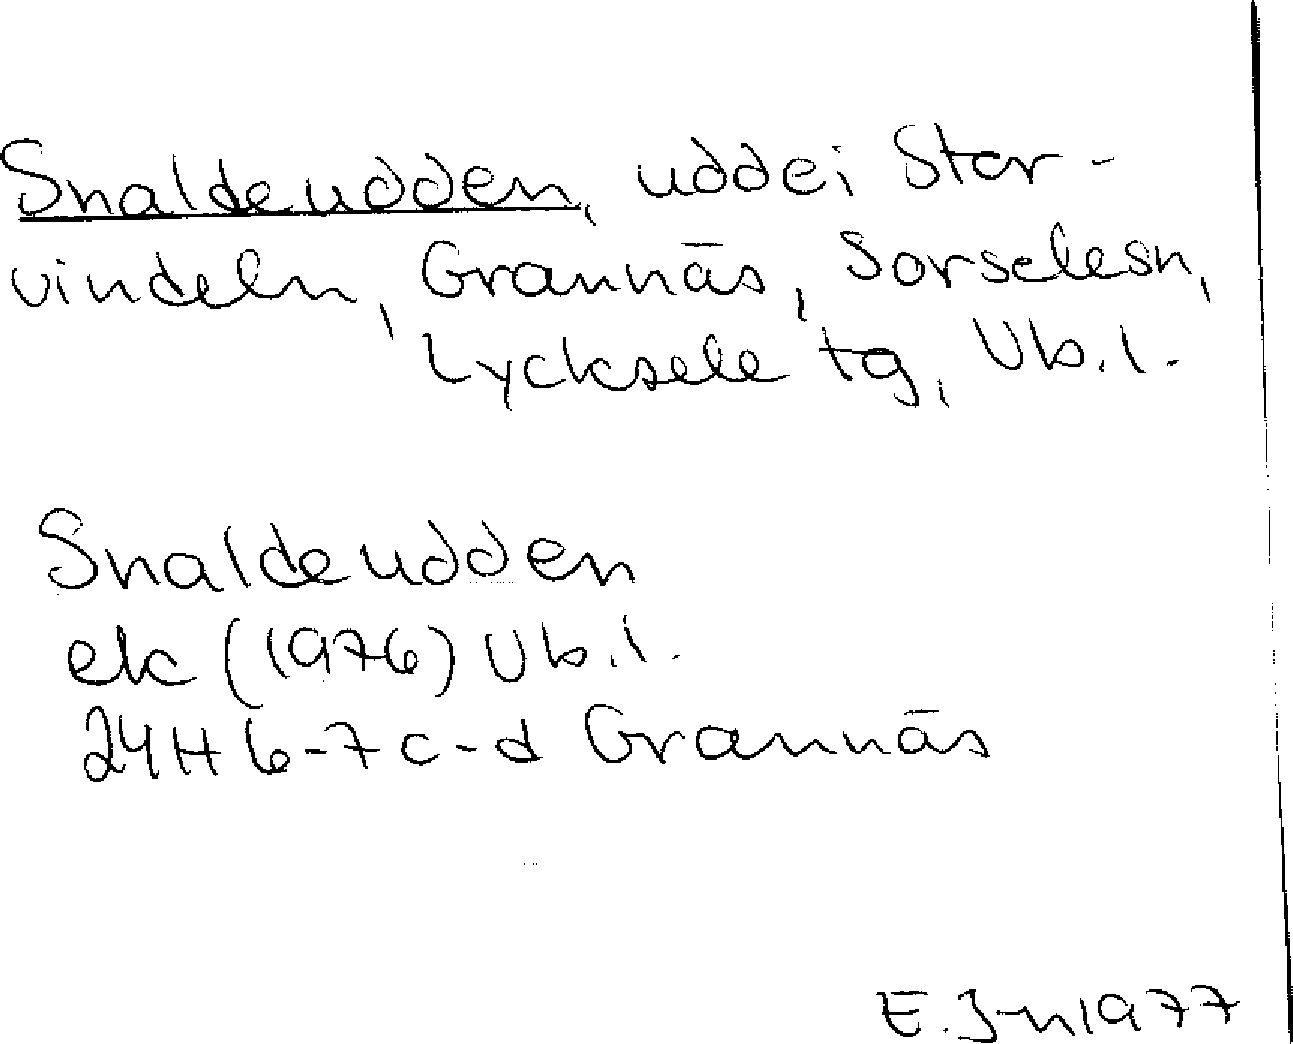 Snaldeudden, udde i Stor-
vindeln, Grannäs, Sorselesn,
Lycksele tg, Vb.l.
Snaldeudden
ek (1976) Vb.l.
24H 6-7 c-d Grannäs
E.J-n 1977